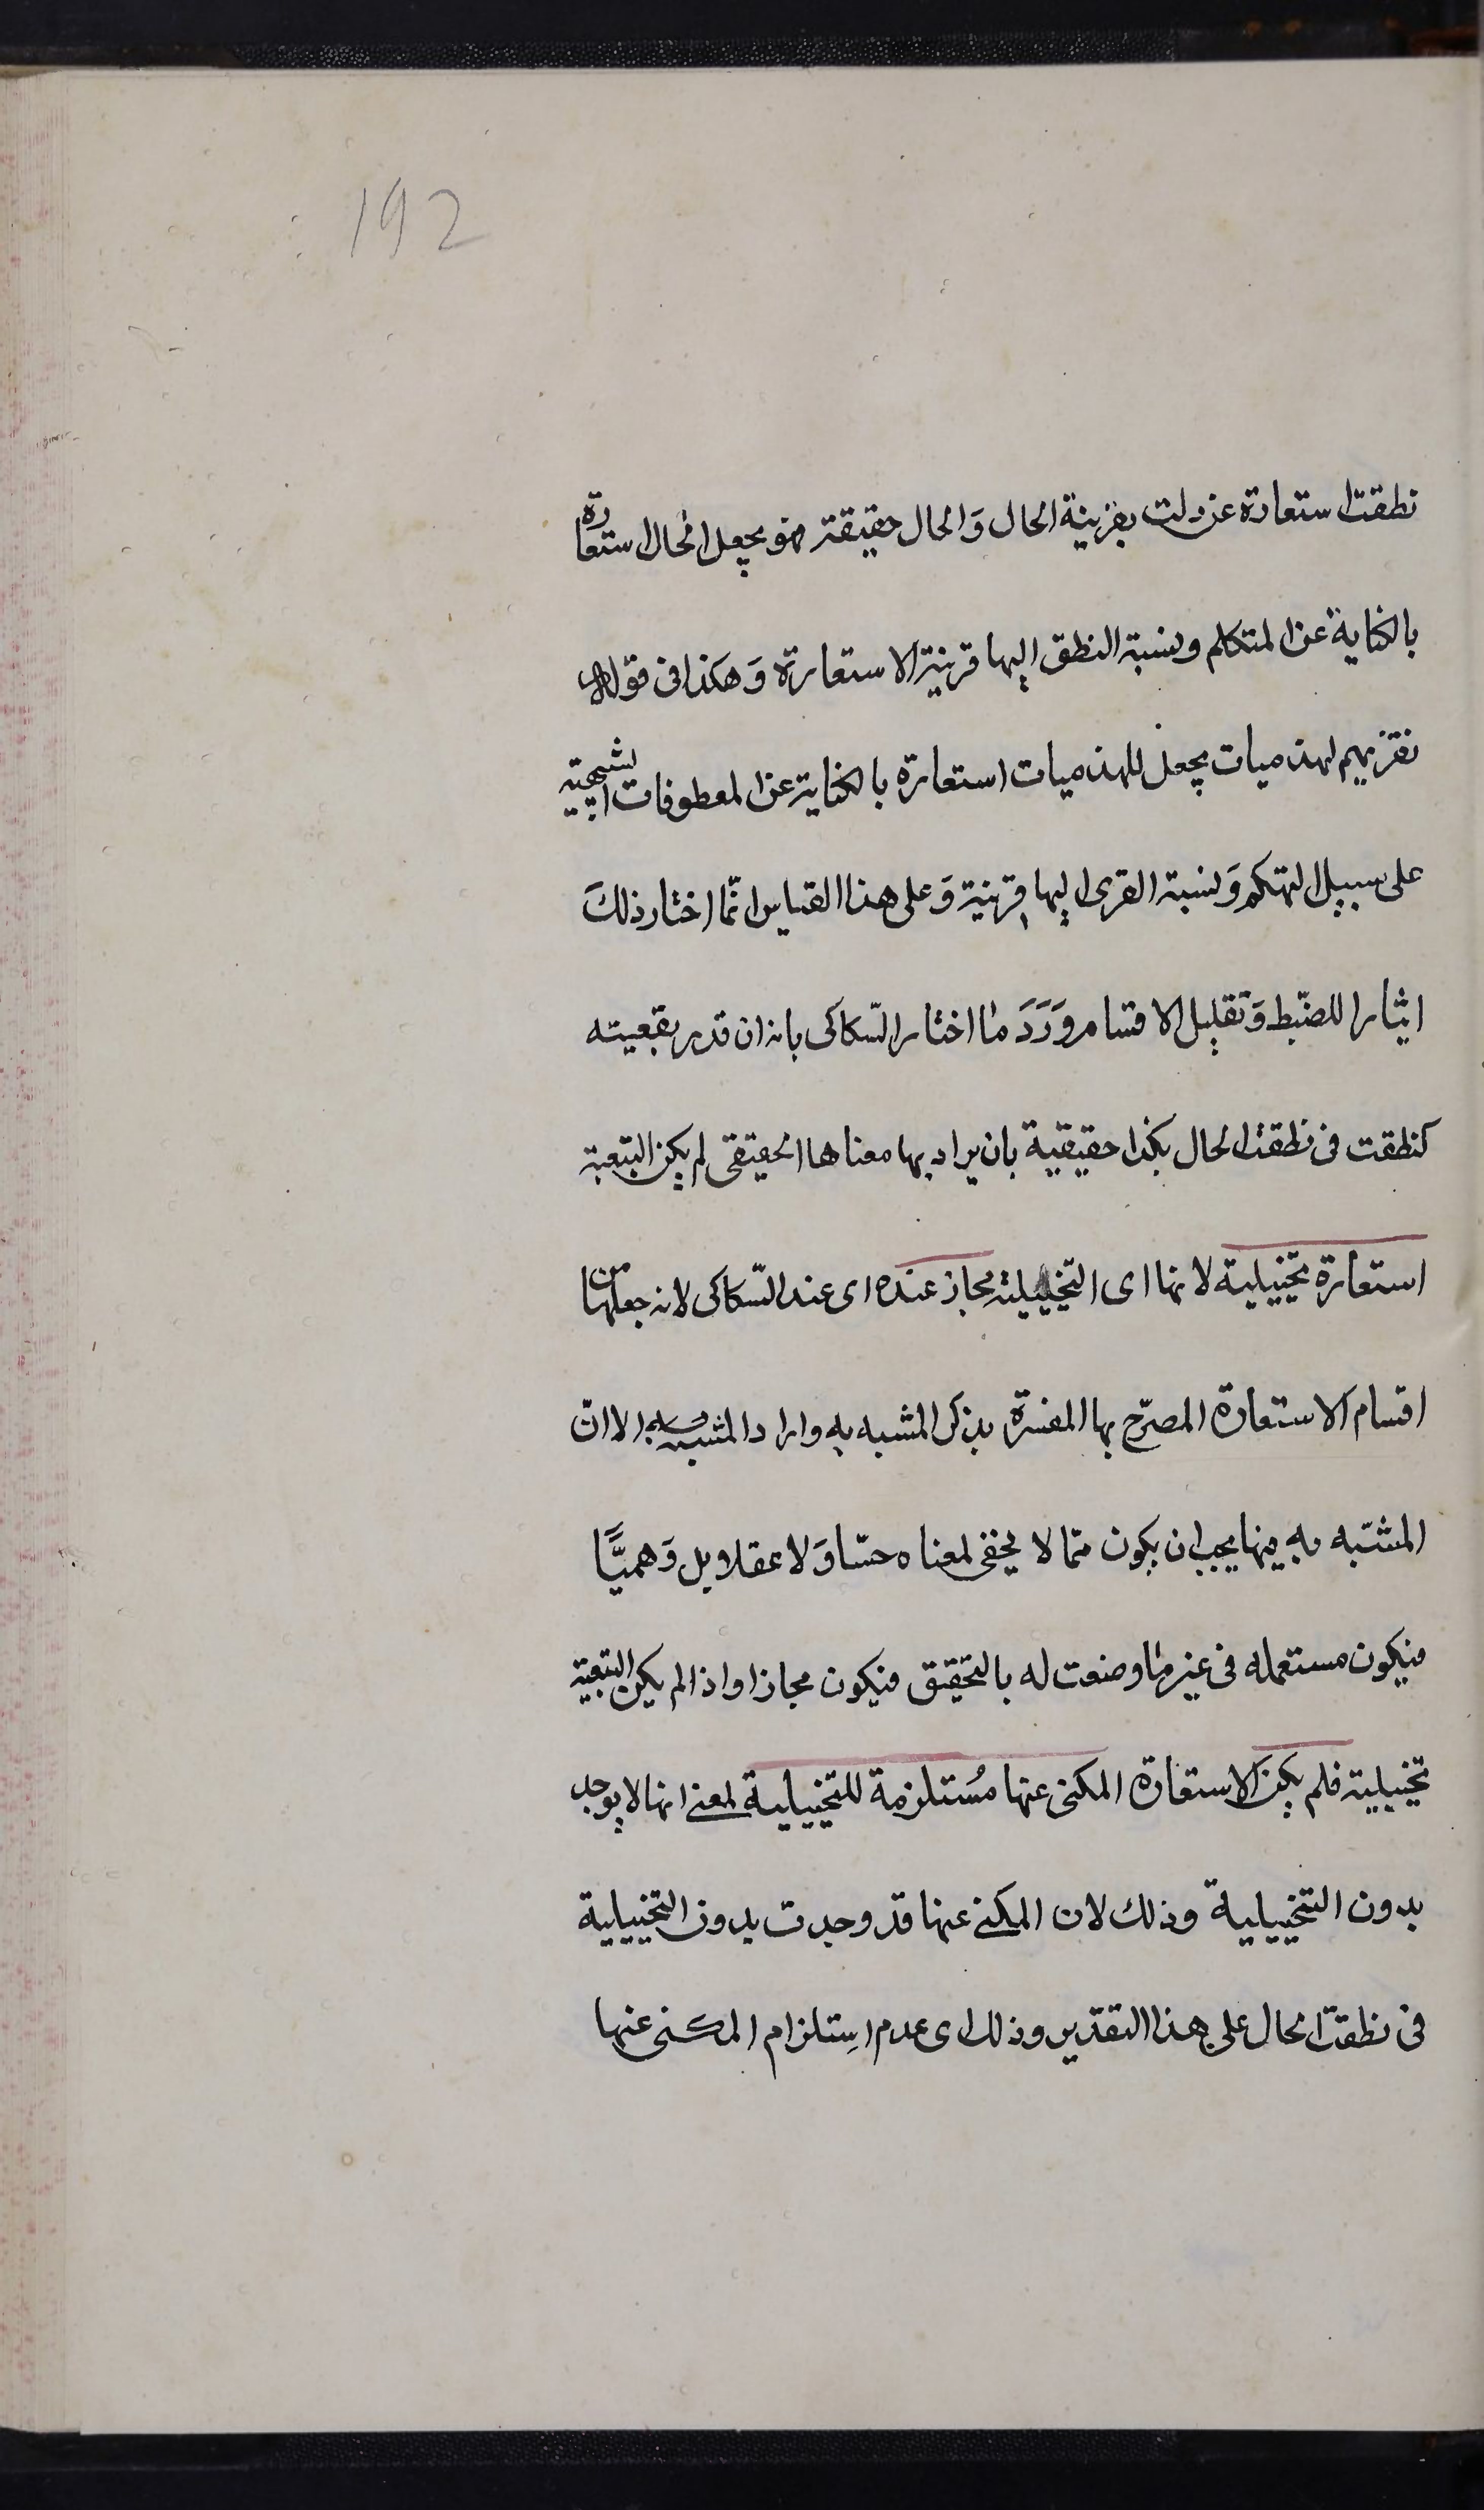 192
نطقت استعارة عن دلت بقرينة الحال وَالحال حقيقة فهو يجعل الحال استعارة
بالكناية عن المتكلم ونسبة النطق اليها قرينة الاستعارة وَهكذا فى قوله
نقريهم لهذميات يجعل اللهذميات استعارة بالكناية عن المطعوفات الشهية
على سبيل التهكم وَنسبة القرى اليها قرينة وَعلى هذا القياس انّما اختار ذلكَ
ايثارا للضّبط وَتقليل الاقسام وَرَدَ ما اختار السّكاكى بانه ان قدر تبعيته
كنطقت فى نطقت الحال بكذا حقيقية بان يراد بها معناها الحقيقى لم يكن التبعية
استعارة تخييلية لانها اى التخييلية مجاز عنده اى عند السّكاكى لانه جعلها من
اقسام الاستعارة المصرّح بها المفسرة بذكر المشبه به واراد المشبه الا انّ
المشبّه به فيها يجب ان يكون ممّا لا يخفى لمعناه حسّا وَلا عقلا بل وَهميًّا
فيكون مستعمله فى غير ما وضعت له بالتحقيق فيكون مجازا واذا لم يكن التبعية
تخييلية فلم يكن الاستعارة المكنى عنها مُستلزمة للتخييلية لمعنى انها لا يوجد
بدون التخييلية وذلك لان المكنى عنها قد وجدت بدون التخييلية
فى نطقت الحال على هذا التقدير وذلك اى عدم اسِتلزام المكنى عنها